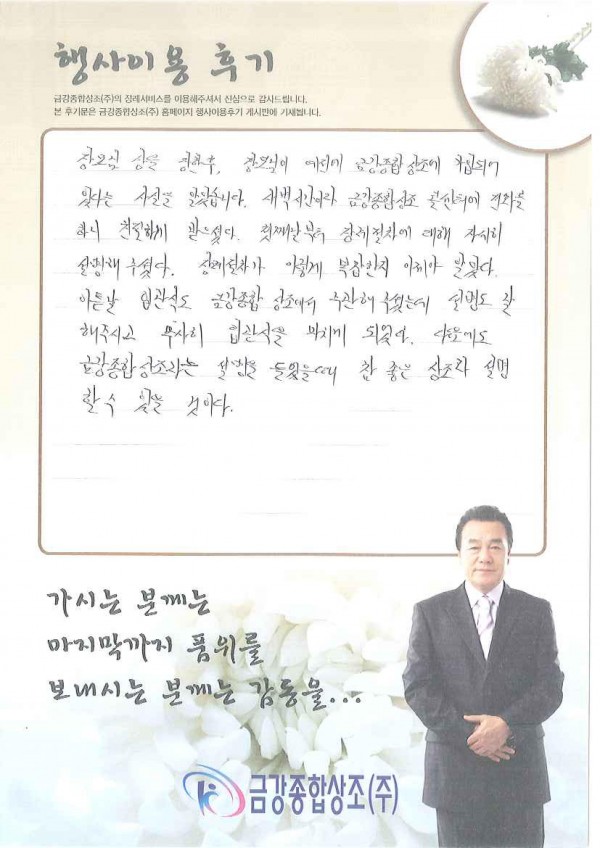 행사이용 후기
금강종합상조(주)의 장례서비스를 이용해주셔서 진심으로 감사드립니다.
본 후기문은 금강종합상조(주) 홈페이지 행사이용후기 게시판에 기재됩니다.
장모님 상을 당한후, 장모님이 예전에 금강종합상조에 가입되어
있다는 사실을 알았습니다. 새벽시간이라 금강종합상조 콜센터에 전화를
하니 친절하게 받으셨다. 첫째날부터 장례절차에 대해 자세히
설명해 주셨다. 장례절차가 이렇게 복잡한지 이제야 알았다.
이튿날 입관식도 금강종합상조에서 주관해 주셨는데 설명도 잘
해주시고 무사히 입관식을 마치게 되었다. 다음에도
금강종합상조라는 말을 들었을때 참 좋은 상조라 설명
할 수 있을 것이다.
가시는 분께는
마지막까지 품위를
보내시는 분께는 감동을...
금강종합상조(주)